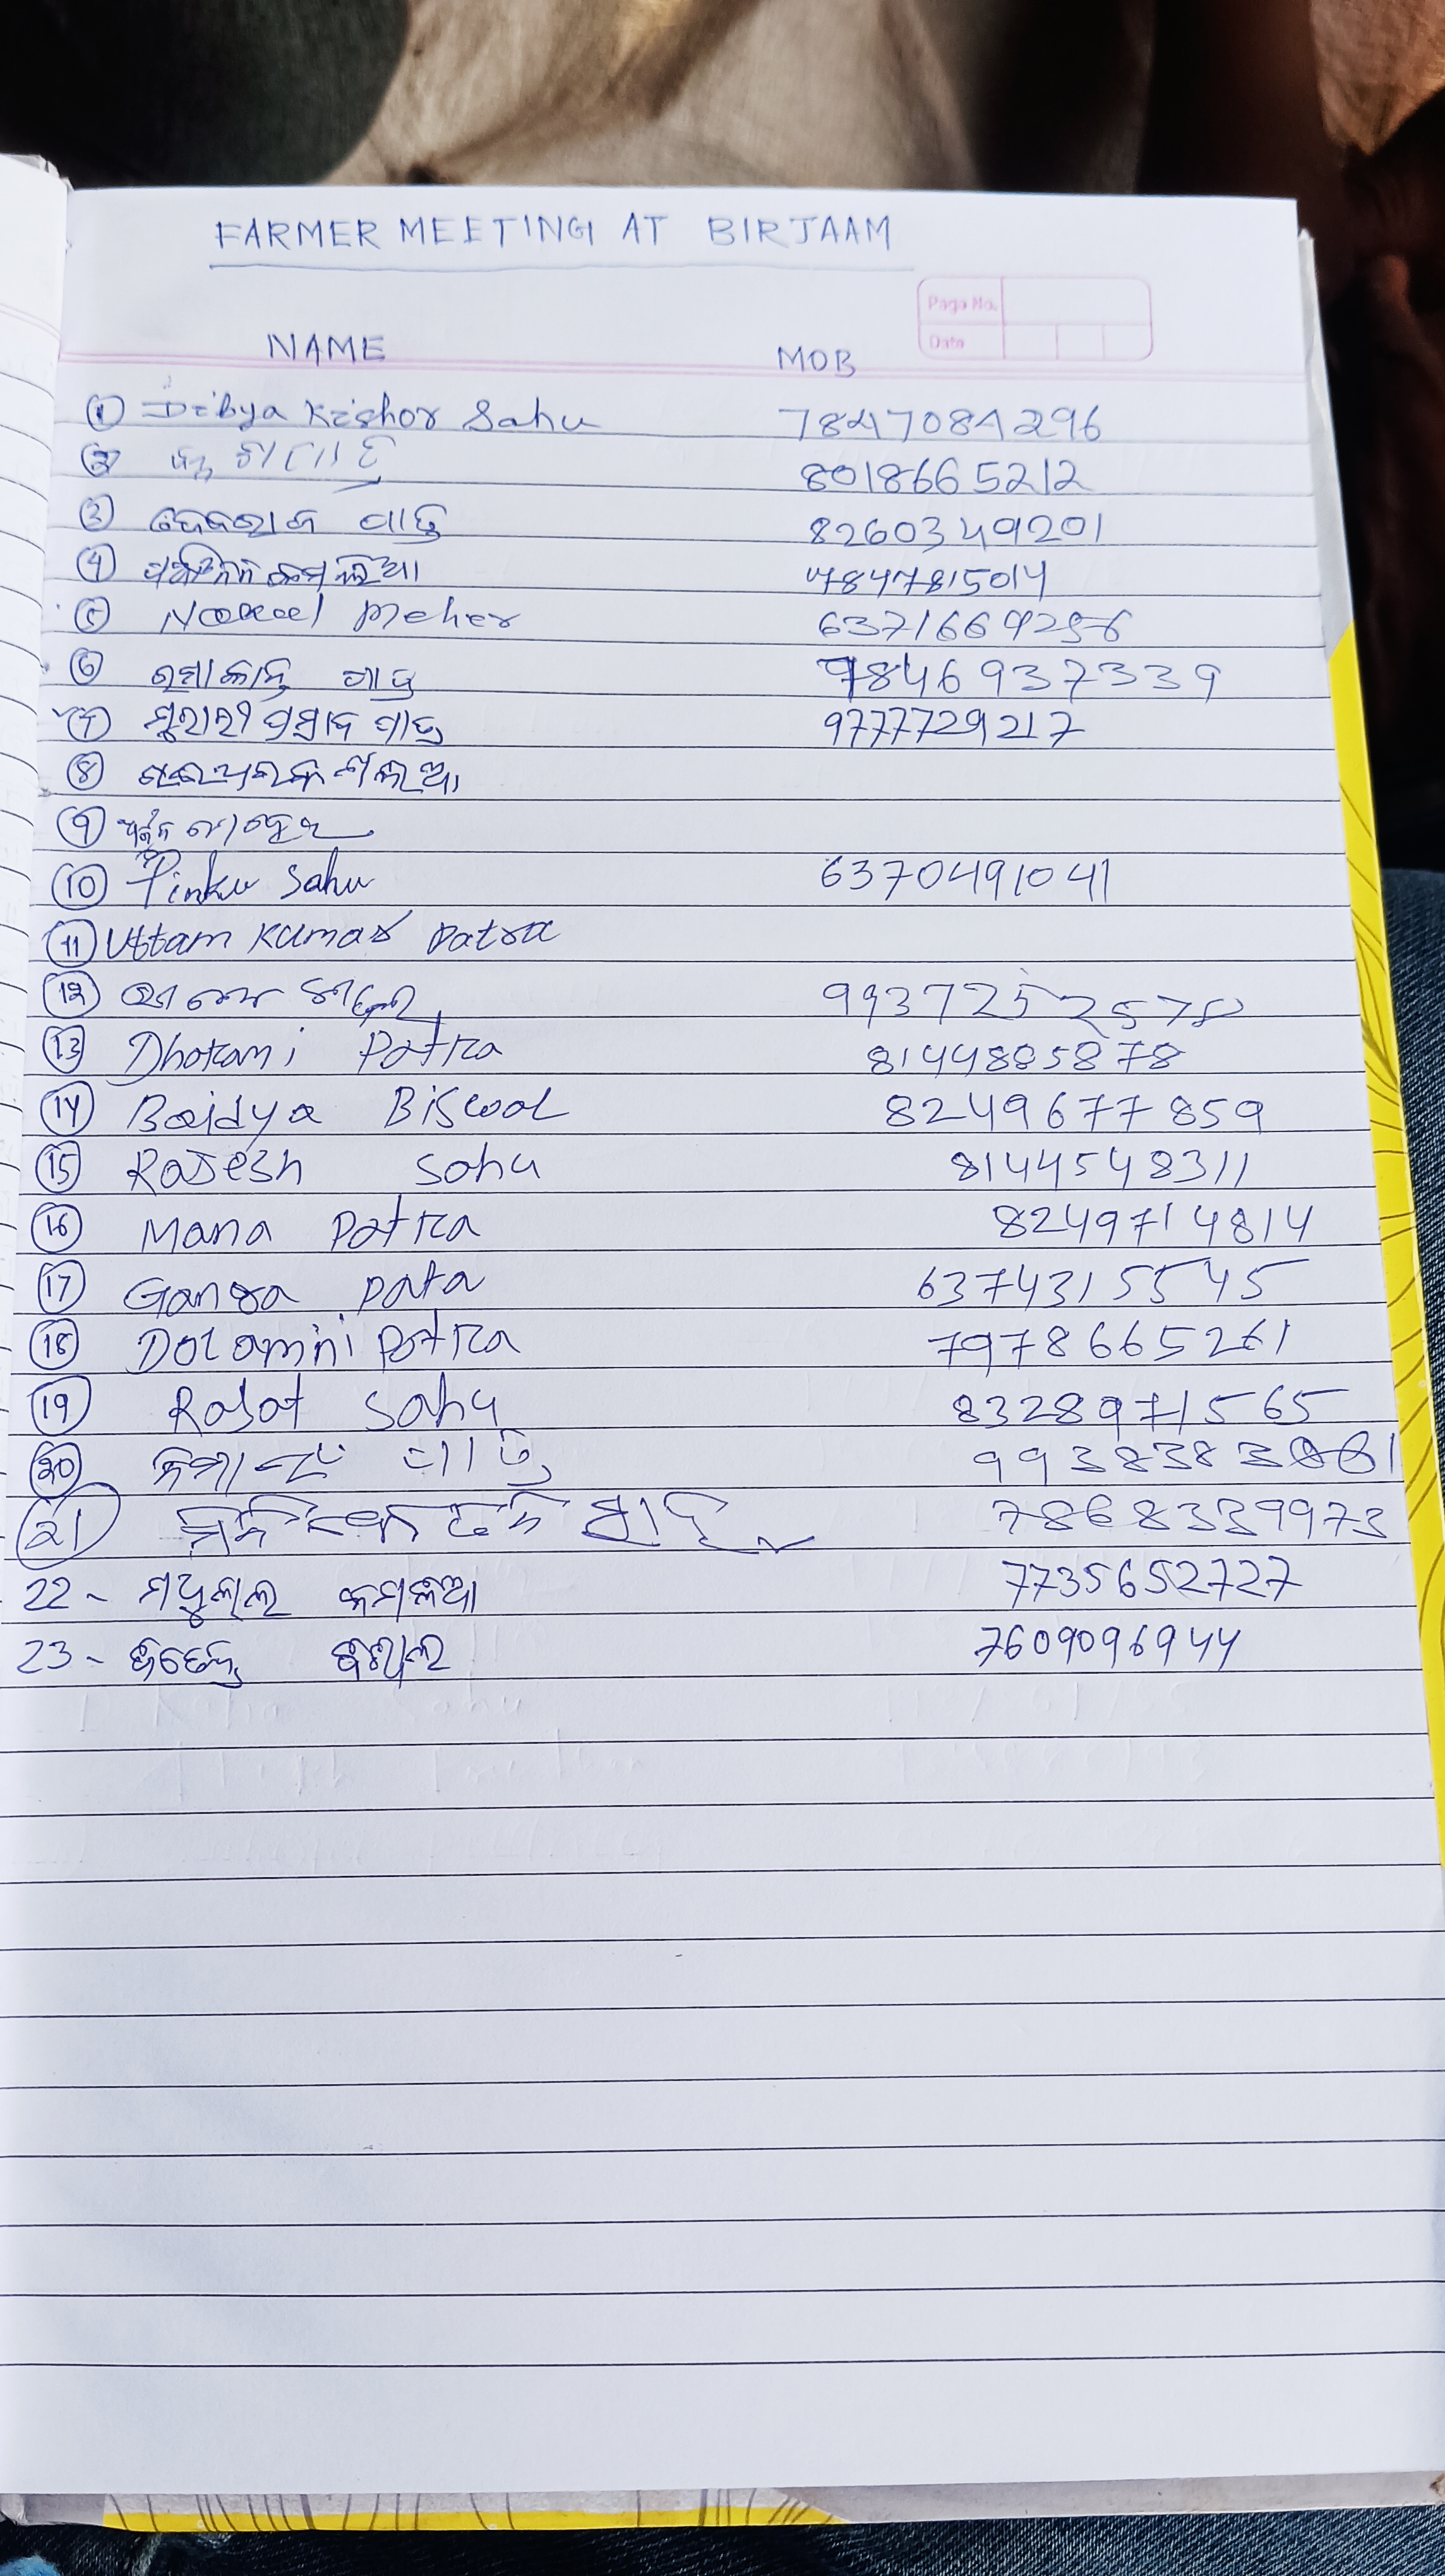 FARMER MEETING AT BIRJAAM
Page No.
Date
NAME MOB
1 Dibya Kishor Sahu 7847084296
2 8018665212
3 ପାତ୍ର 8260349201
4 7847815014
5 Meher 6371669256
6 ରମାକାନ୍ତ ପାତ୍ର 7846937339
7 ମୁରାରୀ ପ୍ରସାଦ ପାତ୍ର 9777729217
8
9 ଅର୍ଜୁନ
10 Pinku Sahu 6370491041
11 Uttam Kumar Patra
12 9937252578
13 Dhotami Patra 8144885878
14 Baidya Biswal 8249677859
15 Rajesh Sahu 8144548311
16 Mana Patra 8249714814
17 Ganga Pata 6374315545
18 Patra 7978665261
19 Rajat Sahu 8328971565
20 ପାତ୍ର
21 7868339973
22- ମଧୁଲାଲ କମଳିଆ 7735652727
23- ବିଶାଲ 7609096944